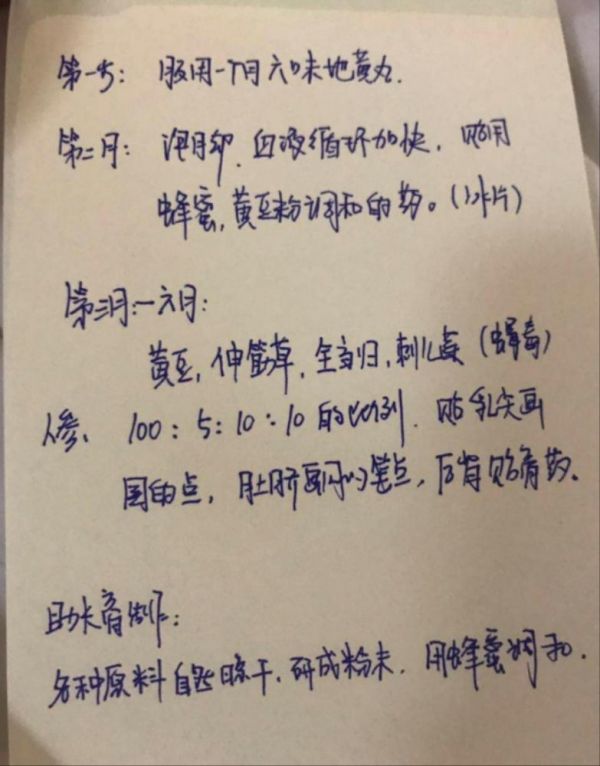 第一步: 服用一个月六味地黄丸.
第二月: 泡脚, 血液循环加快, 贴用
蜂蜜,黄豆粉调和的药。(冰片)
第三月:一六月:
黄豆, 伸筋草, 全当归, 刺儿菜 (蝎毒)
人参、 100:5:10:10 的比例. 贴乳尖画
圆的点, 肚脐画圆的笔点, 后背贴膏药。
助长膏制作:
各种原料自然晾干, 研成粉末, 用蜂蜜调和.